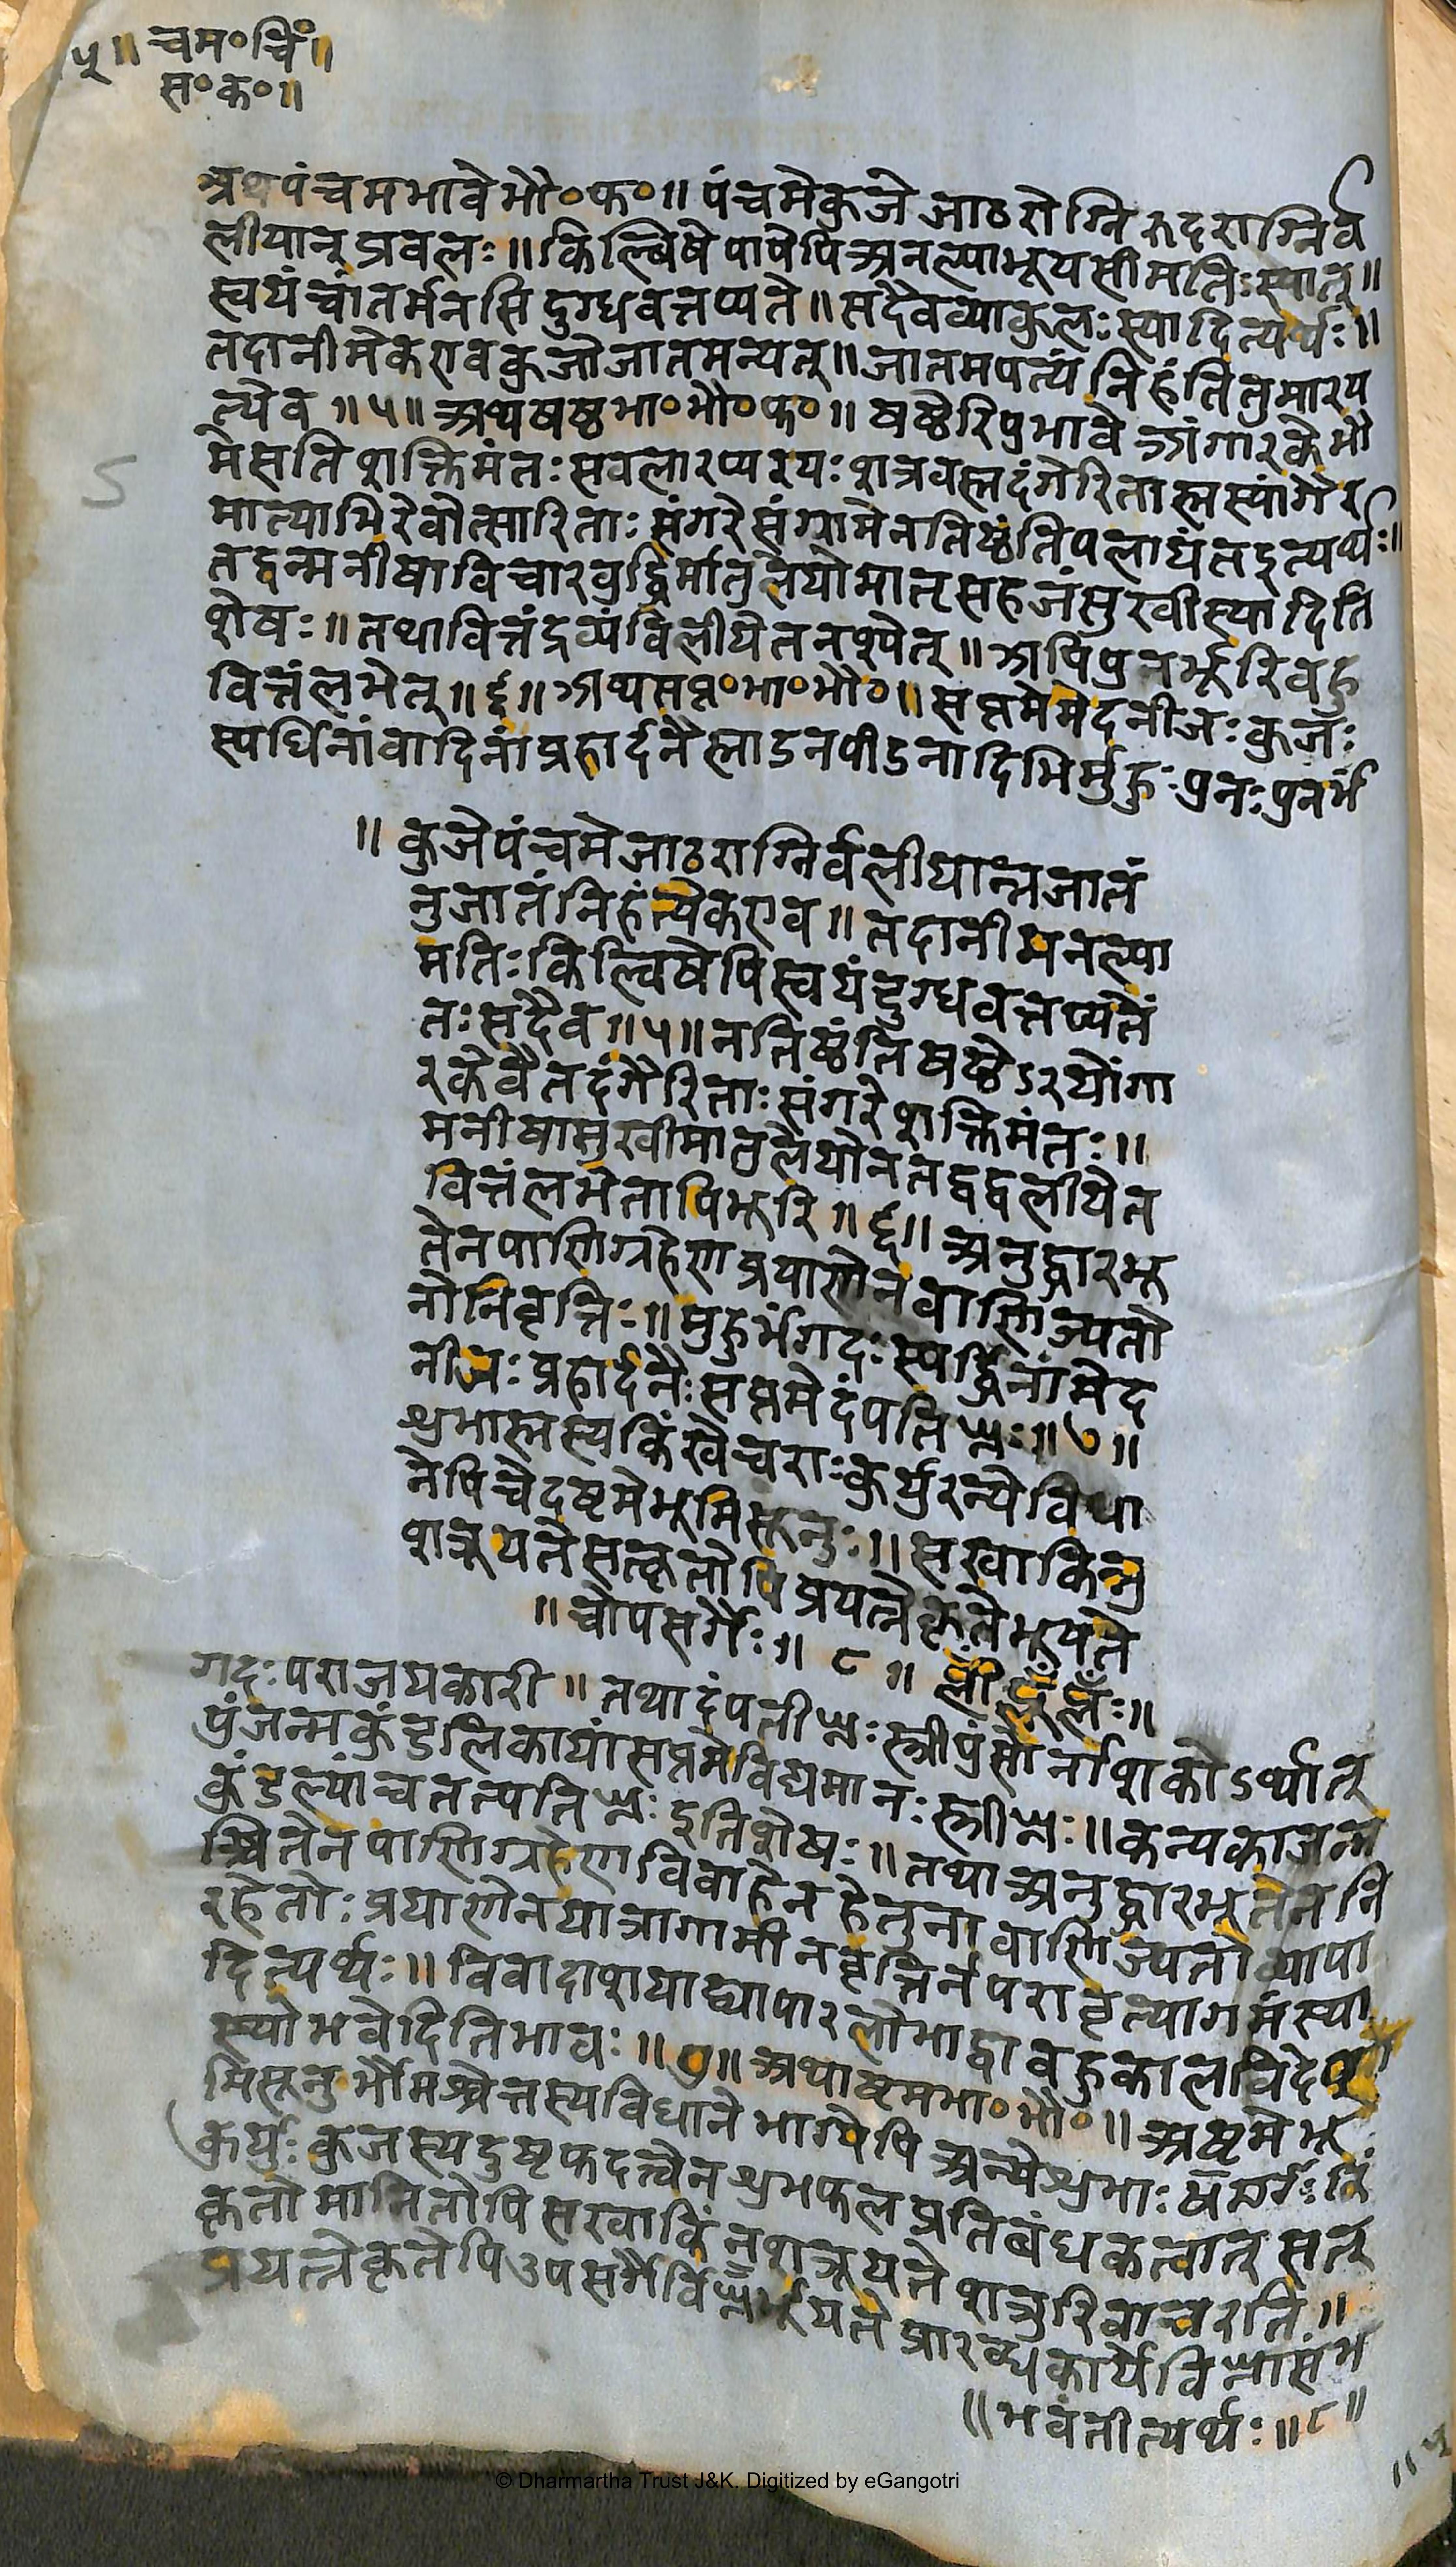 ५॥ चम॰चिं॥
स॰क॰॥
अथपंचमभावेभौ॰फ॰॥ पंचमेकुजे जाठरोग्नि रुदराग्निर्व
लीयान् प्रवलः॥ किल्बिषे पापेपि अनल्पाभूयसी मतिः स्यात्॥
स्वयं चांतर्मनसि दुग्धवत्तप्यते॥ सदैवव्याकुलः स्यादित्यर्थः॥
तदानीमेकएवकुजोजातमन्यत्॥ जातमपत्यं निहंतितुमारय
त्येव॥५॥ अथषष्ठभा॰भौ॰फ॰॥ षष्ठेरिपुभावे अंगारकेभौ
मेसति शक्तिमंतः सवलारप्यरयः शत्रवस्तदंगेरितास्तस्यांगैर
मात्याभिरेवोत्सारिताः संगरेसंग्रामेनतिष्ठंतिपलायंतइत्यर्थः॥
तद्वन्मनीषाविचारवुद्धिर्मातुलेयोमातृसहजंसुखीस्यादिति
शेषः॥ तथावित्तंद्रव्यंविलीयेतनश्येत्॥ अपिपुनर्भूरिवहु
वित्तंलभेत्॥६॥ अथसप्त॰भा॰भौ॰॥ सप्तमेमेदनीजः कुजः
स्पर्धिनांवादिनां प्रहार्दनैस्ताडनपीडनादिभिर्मुहुः पुनःपुनर्भं
॥ कुजेपंचमेजाठराग्निर्वलीयान्नजातं
नुजातंनिहंत्येकएव॥ तदानीमनल्पा
मतिःकिल्विषेपिस्वयंदुग्धवत्तप्यतेतं
तः सदैव॥५॥ नतिष्ठंतिषष्ठेऽरयोंगा
रकेवैतदंगैरिताः संगरेशक्तिमंतः॥
मनीषासुखीमातुलेयोनतद्वद्वलीयेत
वित्तंलभेतापिभूरि॥६॥ अनुद्धारभू
तेनपाणिग्रहेणप्रयाणेनवाणिज्यतो
नोनिवृत्तिः॥ मुहुर्भंगदः स्पर्द्धिनांमेद
नीजः प्रहार्दनैः सप्तमेदंपतिघ्नः॥७॥
शुभास्तस्यकिंखेचराःकुर्युरन्येविधा
नेपिचेदष्टमेभूमिसूनुः॥ सखाकिन्नु
शत्रूयतेसत्कृतोपिप्रयत्नेकृतेभूयते
॥ चोपसर्गैः॥ ८॥
गदः पराजयकारी॥ तथादंपतीघ्नः स्त्रीपुंसोर्नाशकोऽर्थात्
पुंजन्मकुंडलिकायांसप्तमेविद्यमानः स्त्रीघ्नः॥ कन्यकाजन्म
कुंडल्यांचतत्पतिघ्नः इतिशेषः॥ तथाअनुद्धारभूतेननि
श्चितेनपाणिग्रहेणविवाहेनहेतुनावाणिज्यतोव्यापा
रहेतोः प्रयाणेनयात्रागामीनवृत्तिर्नपरावृत्यागमंस्या
दित्यर्थः॥ विवादाशयाद्व्यापारलोभाद्वावहुकालविदेश
स्थोभवेदितिभावः॥७॥ अथाष्टमभा॰भौ॰॥ अष्टमेभू
मिसूनुर्भौमश्चेत्तस्यविधानेभाग्येपि अन्येशुभाः
कुर्युः कुजस्यदुष्टफदत्वेनशुभफलप्रतिबंधकत्वात् सत्
कृतोमानितोपिसखाकिंनुशत्रूयते शत्रुरिवाचरति॥
प्रयत्नेकृतेपिउपसर्गैर्विघ्नैर्भूयते प्रारब्धकार्येविघ्नासंभ
॥भवंतीत्यर्थः॥८॥
॥५
© Dharmartha Trust J&K. Digitized by eGangotri